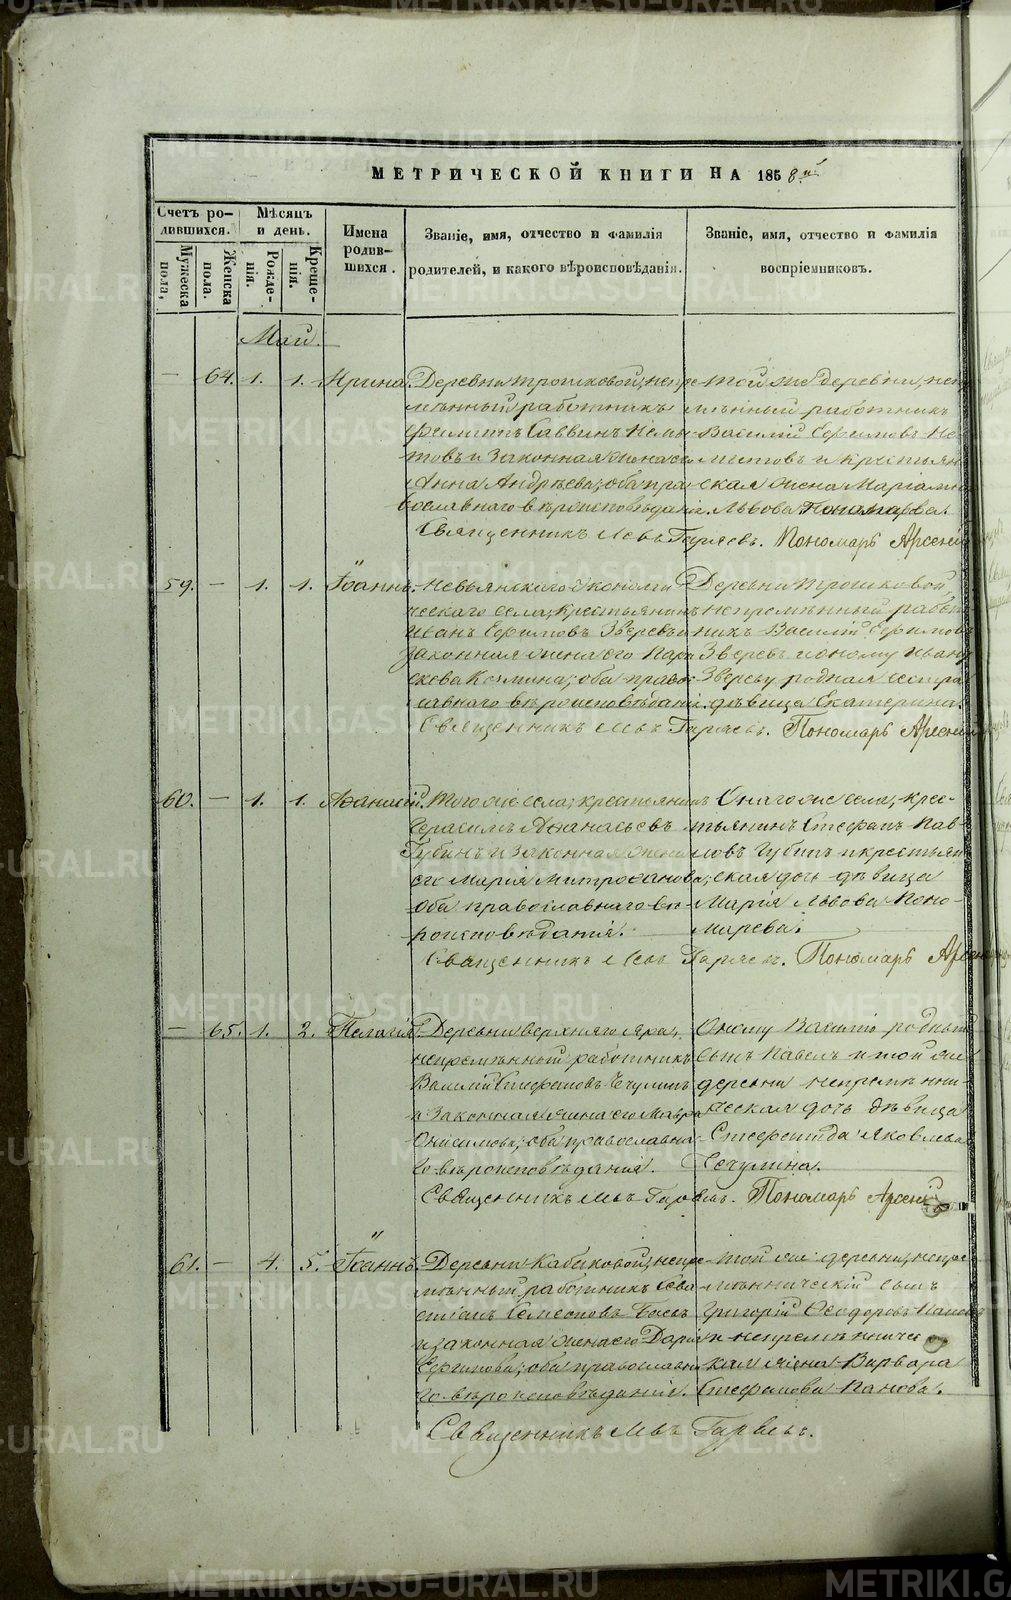 МЕТРИЧЕСКОЙ КНИГИ НА 1858й
Счетъ ро-
дившихся.
Мужеска
пола,
Женска
пола.
Мѣсяцъ
и день.
Рожде-
нія.
Креще-
нія.
Имена
родив-
шихся.
Званіе, имя, отчество и фамилія
родителей, и какого вѣроисповѣданія.
Званіе, имя, отчество и фамилія
воспріемниковъ.
Май.
— 64. 1. 1. Ирина.
Деревни Трошковой, непре
мѣнный работникъ
Филиппъ Саввинъ
и законная жена его
Анна Андреева; оба пра
вославнаго вѣроисповѣданія.
той же деревни, непре
мѣнный работникъ
Василій Ефимовъ
и крестьян
ская жена
Львова Пономарева.
Священникъ Левъ Гаряевъ. Пономарь Арсеній
59. — 1. 1. Іоаннъ.
Невьянскаго экономи
ческаго села, крестьянинъ
Иванъ Ефимовъ Зверевъ и
законная жена его Пара
скова Козмина; оба право
славнаго вѣроисповѣданія.
Деревни Трошковой,
непремѣнный работ
никъ Василій Ефимовъ
Зверевъ и оному Ивану
Звереву родная сестра
дѣвица Екатерина.
Священникъ Левъ Гаряевъ. Пономарь Арсеній
60. — 1. 1. Аѳанасій.
Того же села, крестьянинъ
Герасимъ Аѳанасьевъ
Губинъ и законная жена
его Марія Митрофанова;
оба православнаго вѣ-
роисповѣданія.
Онаго же села, крес-
тьянинъ Стефанъ Пав-
ловъ Губинъ и крестьян
ская дочь дѣвица
Марія Львова Поно-
марева.
Священникъ Левъ Гаряевъ. Пономарь Арсеній
— 65. 1. 2. Пелагія.
Деревни Верхняго яра,
непремѣнный работникъ
Василій Стефановъ Чечулинъ
и законная жена его Мавра
Онисимова; оба православна-
го вѣроисповѣданія.
Оному Василію родный
сынъ Павелъ и той же
деревни непремѣнни-
ческая дочь дѣвица
Яковлева
Чечулина.
Священникъ Левъ Гаряевъ. Пономарь Арсеній
61. — 4. 5. Іоаннъ.
Деревни Кабаковой, непре
мѣнный работникъ Сева
стіанъ Семеоновъ
и законная жена его Дарья
Ефимова; оба православна
го вѣроисповѣданія.
той же деревни, непре
мѣнническій сынъ
Григорій Ѳеодоровъ Пановъ
и непремѣнниче
кая жена Варвара
Стефанова Панова.
Священникъ Левъ Гаряевъ.
METRIKI.GASO-URAL.RU